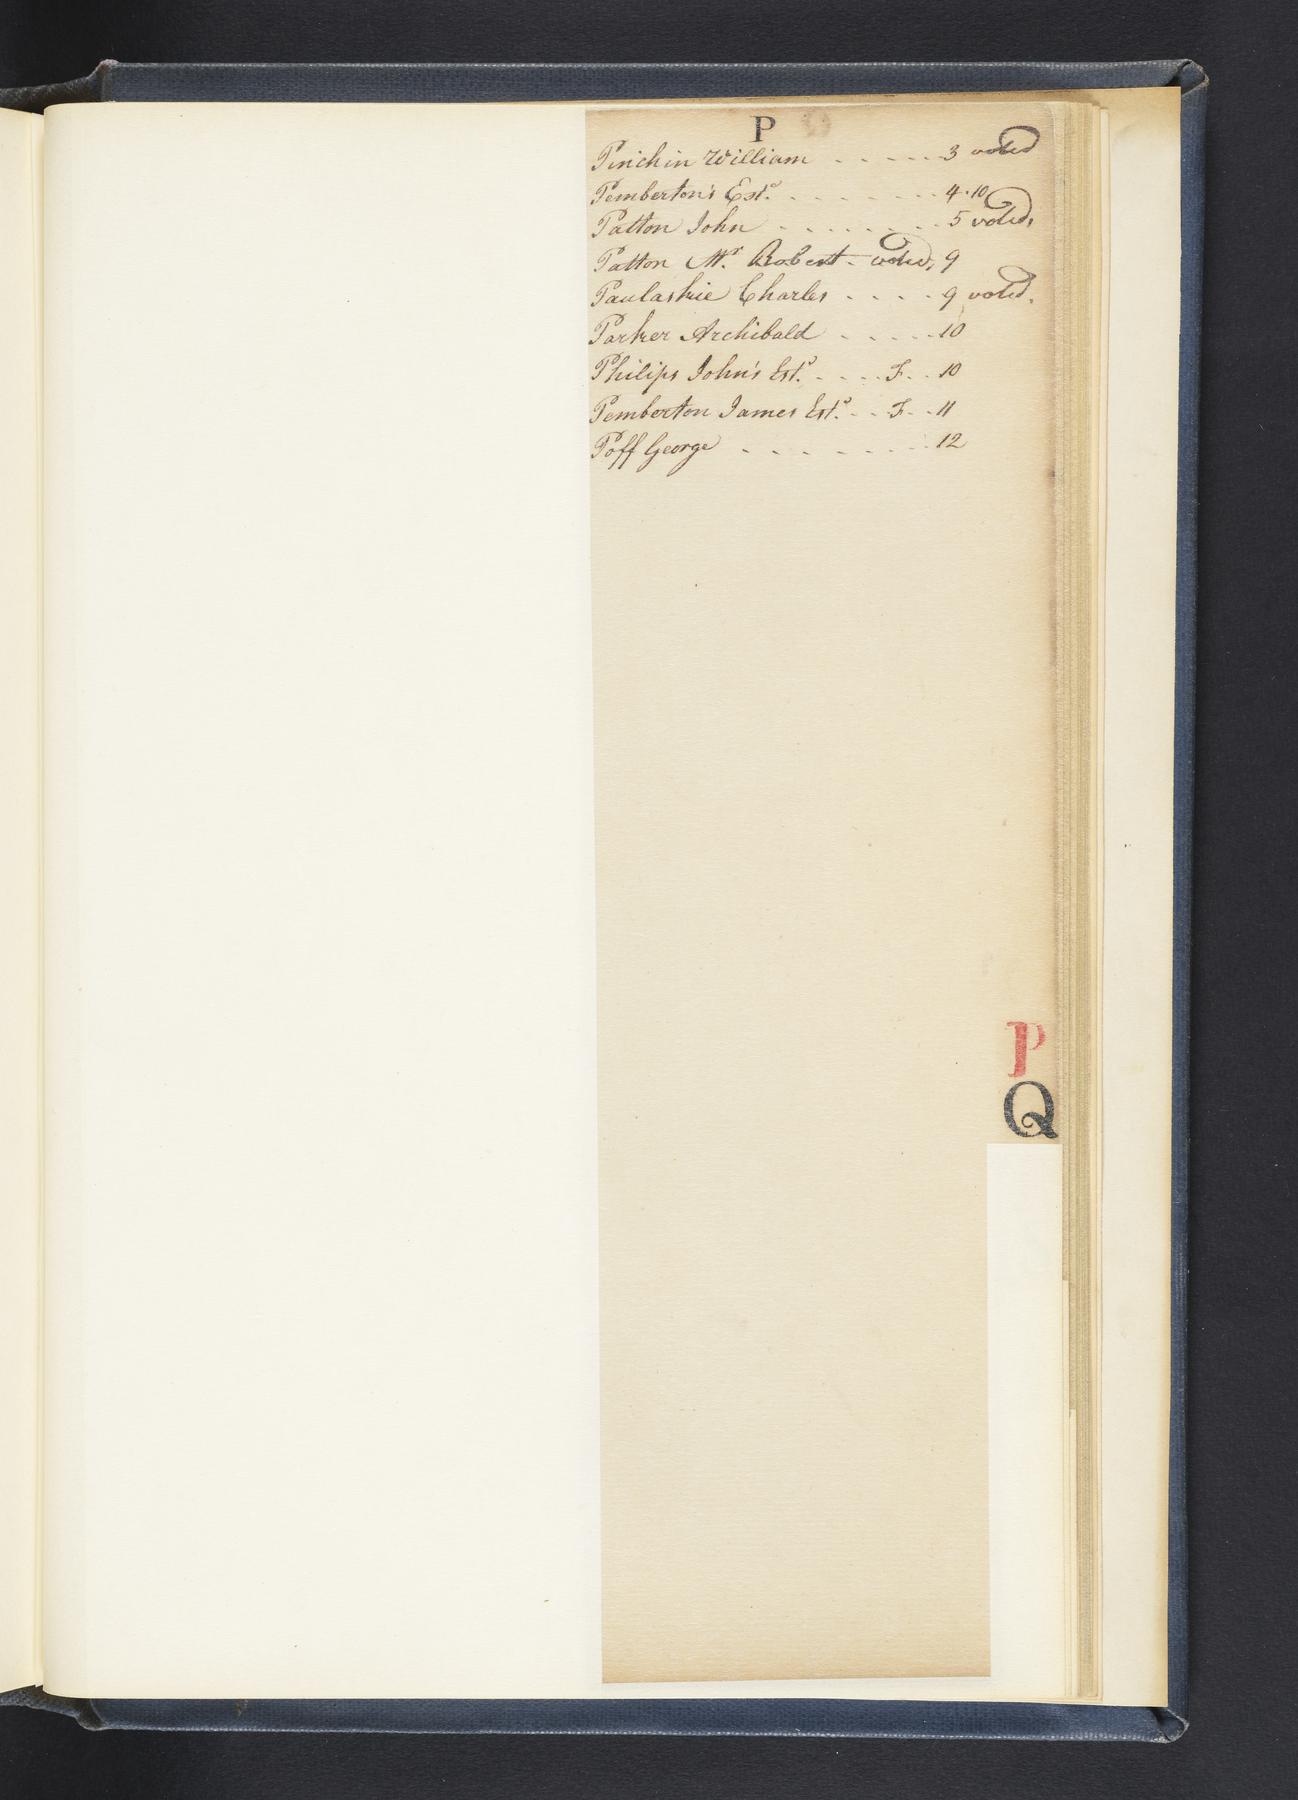 P
Pinchin William . . . . . 3 voted
Pemberton's Est.e . . . . . . . 4.10
Patton John . . . . . . . . 5 voted,
Patton Mr. Robert - voted, 9
Paulaskie Charles . . . . 9 voted.
Parker Archibald . . . . . 10
Philips John's Est.e . . . . F. . 10
Pemberton James Est.e . . F. . 11
Poff George . . . . . . . . 12
P
Q